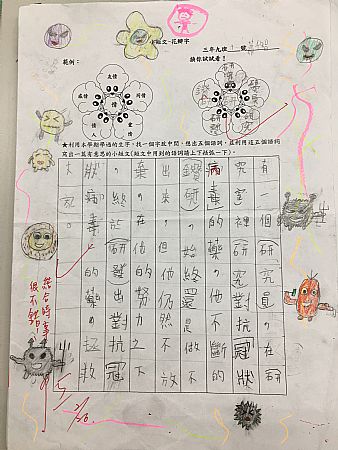 小短文-花瓣字
三年九班
範例：
換你試試看！
友情
感情
同情
情
情人
★利用本學期學過的生字，找一個字放中間，想出五個語詞，並利用這五個語詞
寫出一篇有意思的小短文(短文中用到的語詞請上下括弧一下)。
有一個(研究)員，在研
究室裡(研究)對抗冠狀
病毒的藥，他不斷的
(鑽研)，始終還是做不
出來，但他仍然不放
棄，在他的努力之下
，終於(研發)出對抗冠
狀病毒的藥，拯救
結合時事
很不錯！